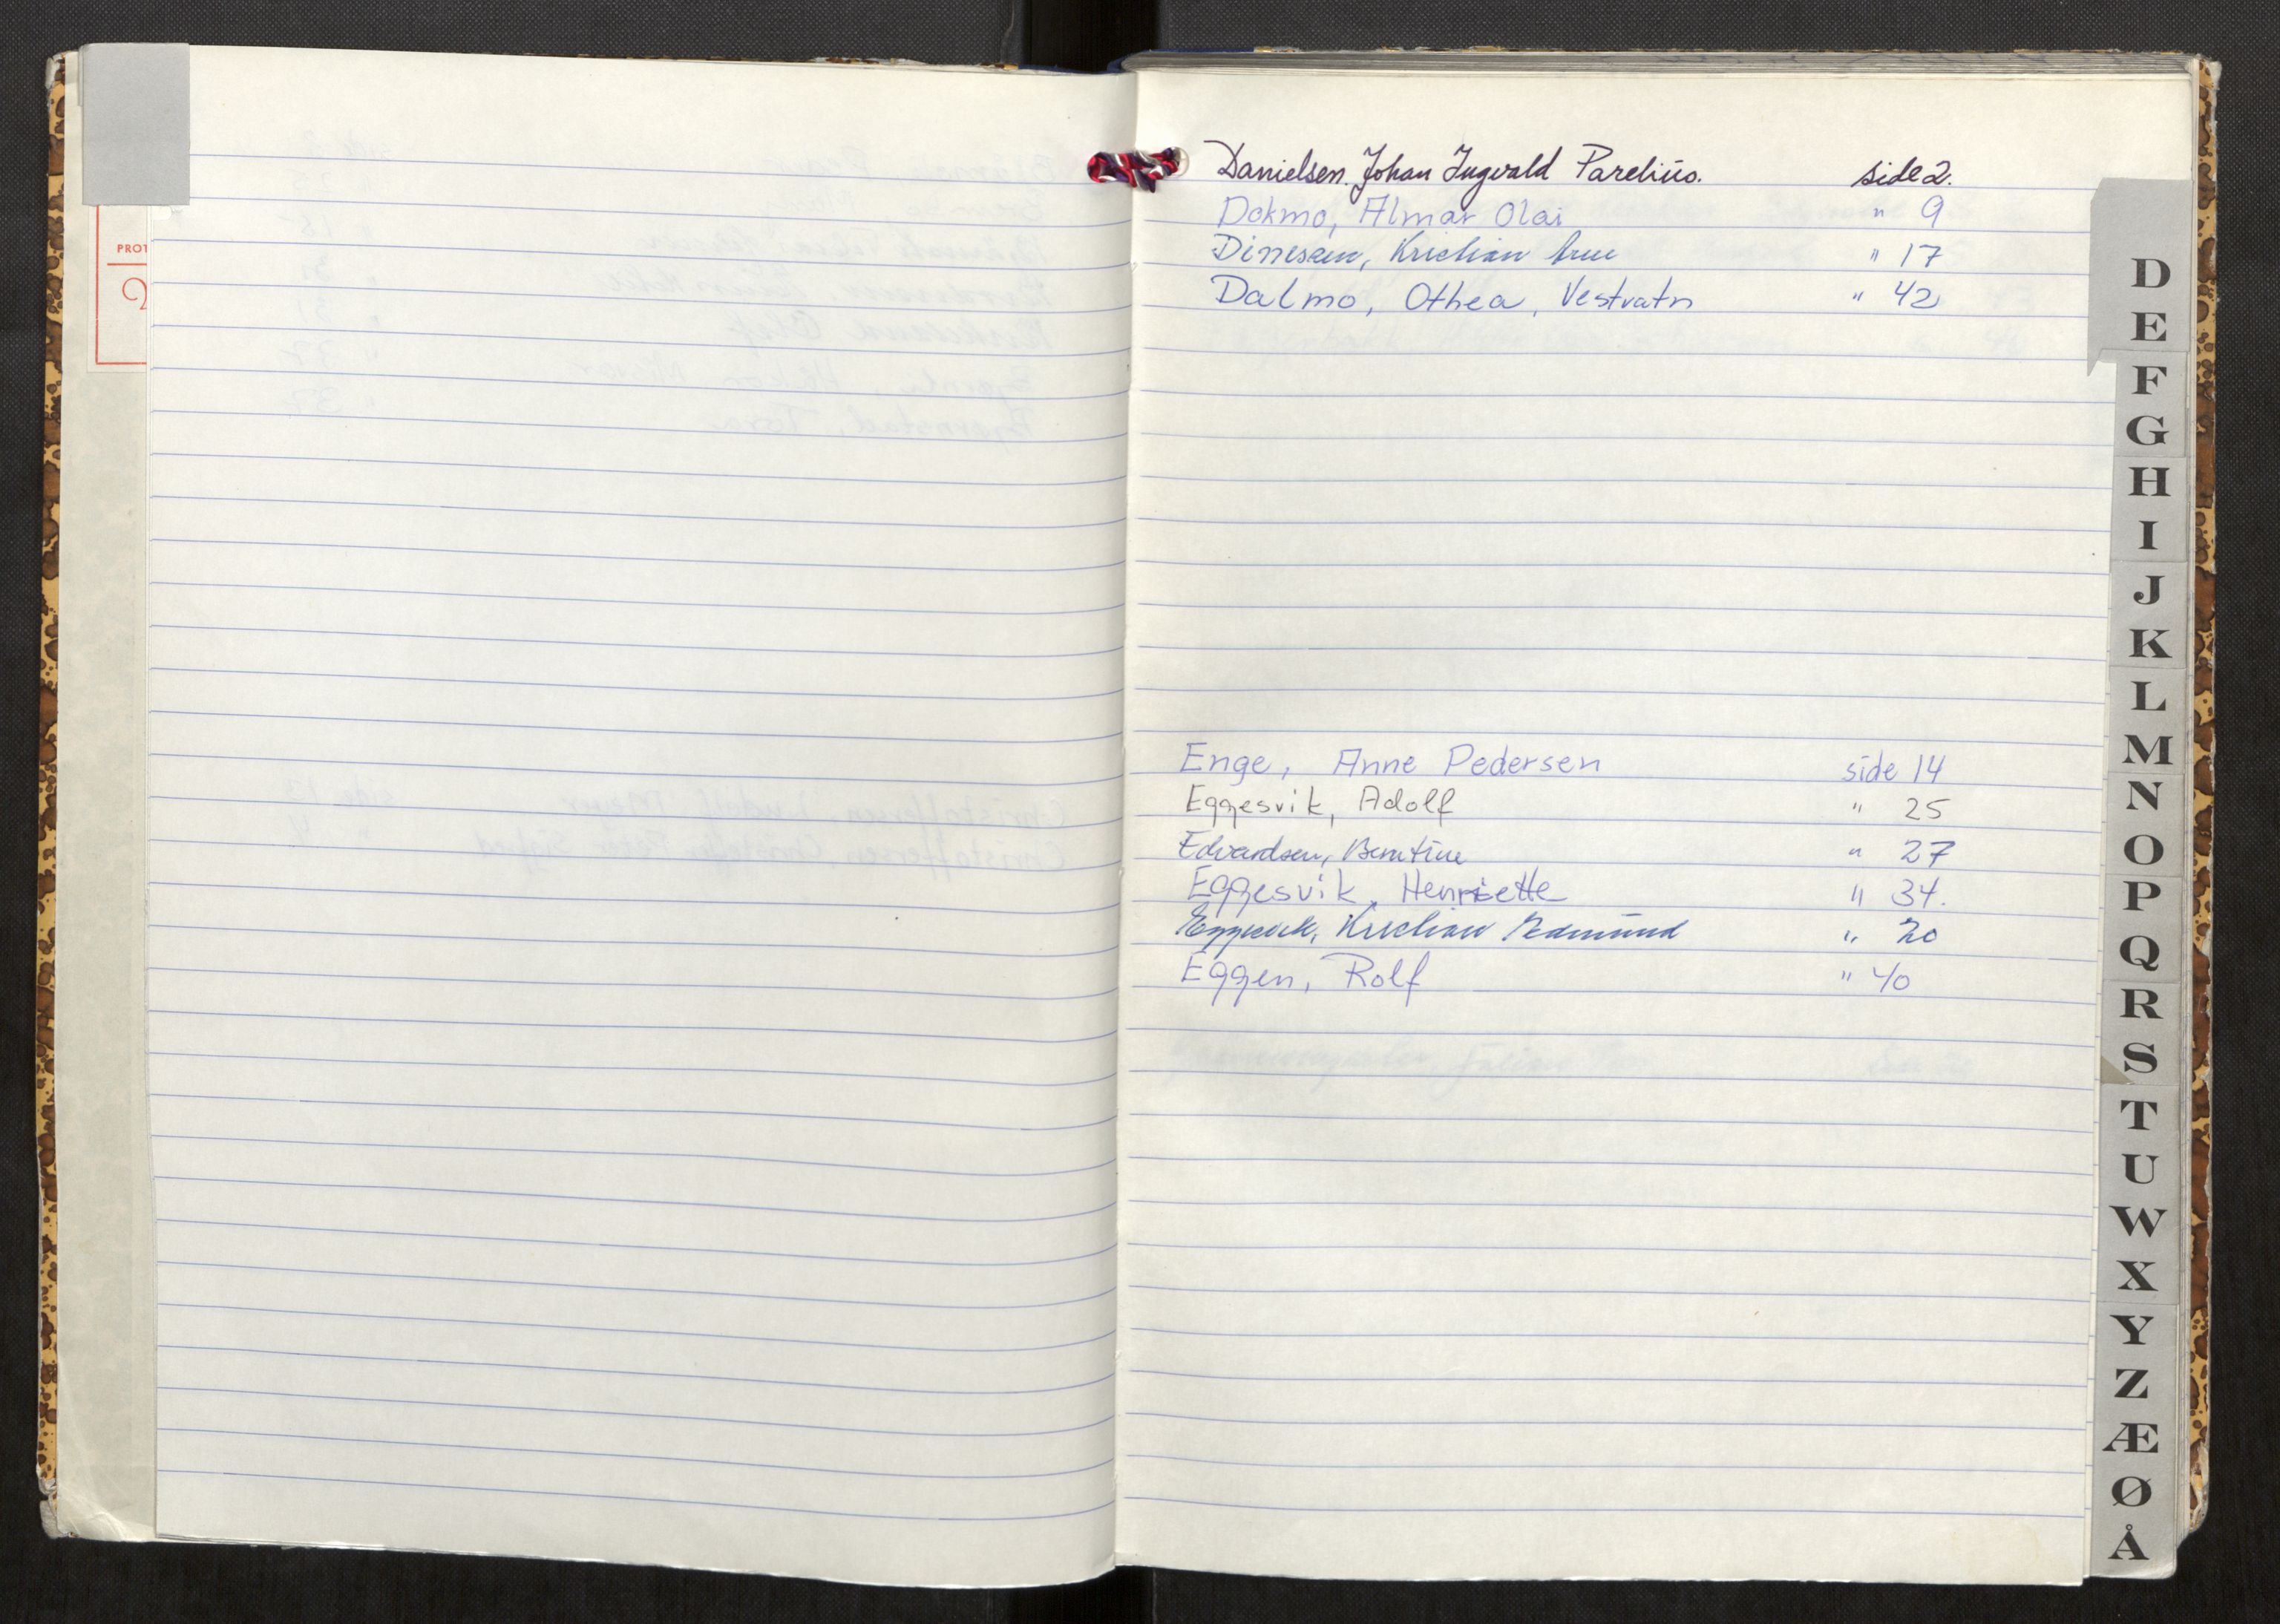 PROT
Danielsen. Johan Ingvald Parelius. side 2.
Dokmo, Almar Olai " 9
Dinesen, Kristian " 17
Dalmo, Othea, Vestvatn " 42
Enge, Anne Pedersen side 14
Eggesvik, Adolf " 25
Edvardsen, Berntine " 27
Eggesvik, Henriette " 34.
Eggesvik, Kristian Edmund " 20
Eggen, Rolf " 40
D
E
F
G
H
I
J
K
L
M
N
O
P
Q
R
S
T
U
W
X
Y
Z
Æ
Ø
Å